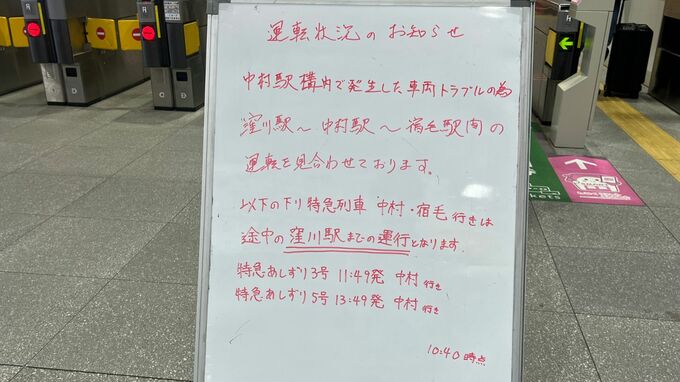 運転状況のお知らせ
中村駅構内で発生した車両トラブルの為
窪川駅~中村駅~宿毛駅間の
運転を見合わせております。
以下の下り特急列車 中村・宿毛 行きは
途中の窪川駅までの運行となります.
特急あしずり3号 11:49発 中村 行き
特急あしずり5号 13:49発 中村 行き
10:40 時点
E
D
C
D
kets